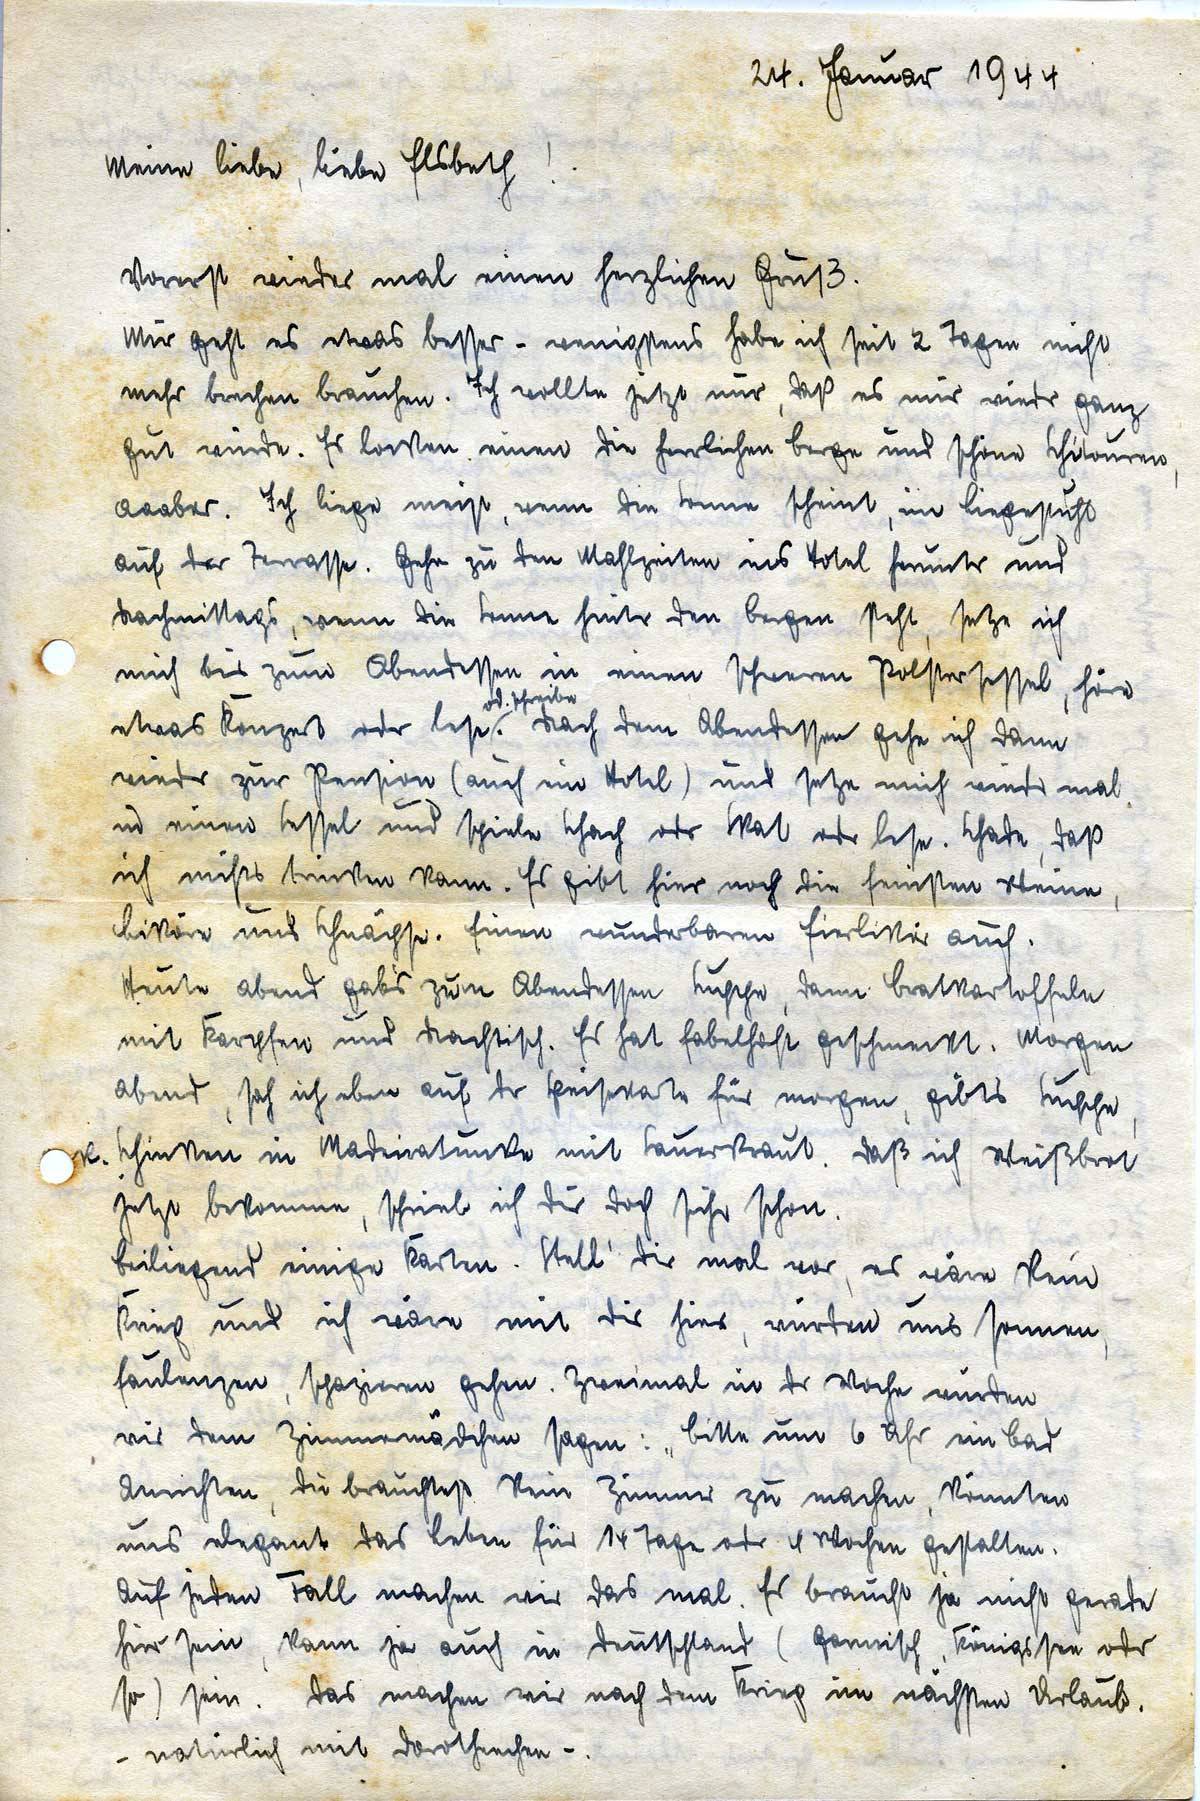 24. Januar 1944
Meine liebe, liebe Elsbeth!
Vorerst wieder mal einen herzlichen Gruß.
Mir geht es etwas besser - wenigstens habe ich seit 2 Tagen nicht
mehr brechen brauchen. Ich wollte jetzt nur, daß es mir wieder ganz
gut würde. Es locken einen die herrlichen Berge und schöne Schitouren,
aaaber. Ich liege meist, wenn die Sonne scheint, im Liegestuhl
auf der Terrasse. Gehe zu den Mahlzeiten ins Hotel herunter und
Nachmittags, wenn die Sonne hinter den Bergen steht, setze ich
mich bis zum Abendessen in einen schweren Polstersessel, höre
etwas Konzert oder lese od. schreibe. Nach dem Abendessen gehe ich dann
wieder zur Pension (auch ein Hotel) und setze mich wieder mal
in einen Sessel und spiele Schach oder Skat oder lese. Schade, daß
ich nichts trinken kann. Es gibt hier noch die feinsten Weine,
Liköre und Schnäpse. Einen wunderbaren Eierlikör auch.
Heute abend gab's zum Abendessen Suppe, dann Bratkartoffeln
mit Karpfen und Nachtisch. Es hat fabelhaft geschmeckt. Morgen
abend, sah ich eben auf der Speisekarte für morgen, gibts Suppe,
K. Schinken in Madeiratunke mit Sauerkraut. Daß ich Weißbrot
jetzt bekomme, schrieb ich dir doch sicher schon.
Beiliegend einige Karten. Stell' dir mal vor, es wäre kein
Krieg und ich wäre mit dir hier, würden uns sonnen,
faulenzen, spazieren gehen. Zweimal in der Woche würden
wir dem Zimmermädchen sagen: „Bitte um 6 Uhr ein Bad
Anrichten, du brauchtest kein Zimmer zu machen, könnten
uns elegant das Leben für 14 Tage oder 4 Wochen gestalten.
Auf jeden Fall machen wir das mal. Es braucht ja nicht gerade
hier sein, kann ja auch in Deutschland (Garmisch, Königssee oder
so) sein. Das machen wir nach dem Krieg im nächsten Urlaub.
- natürlich mit Dorotheechen -.